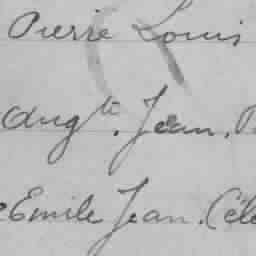 Pierre Louis
Aug^te. Jean.
Emile Jean. Cél